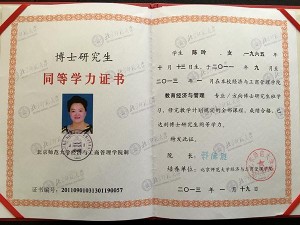 博士研究生
同等学力证书
北京师范大学经济与工商管理学院制
证书编号：20110901031301190057
学生 陈玲 女 一九六五
年 十 月 十三 日，于二〇一一 年 九 月至
二〇一三 年 一 月在本校经济与工商管理学院
教育经济与管理
专业/方向博士研究生班学
习，修完教学计划规定的全部课程，成绩合格，已
达到博士研究生同等学力。
特发此证。
院 长
培养单位：北京师范大学经济与工商管理学院
二〇一三 年 一 月 十九 日